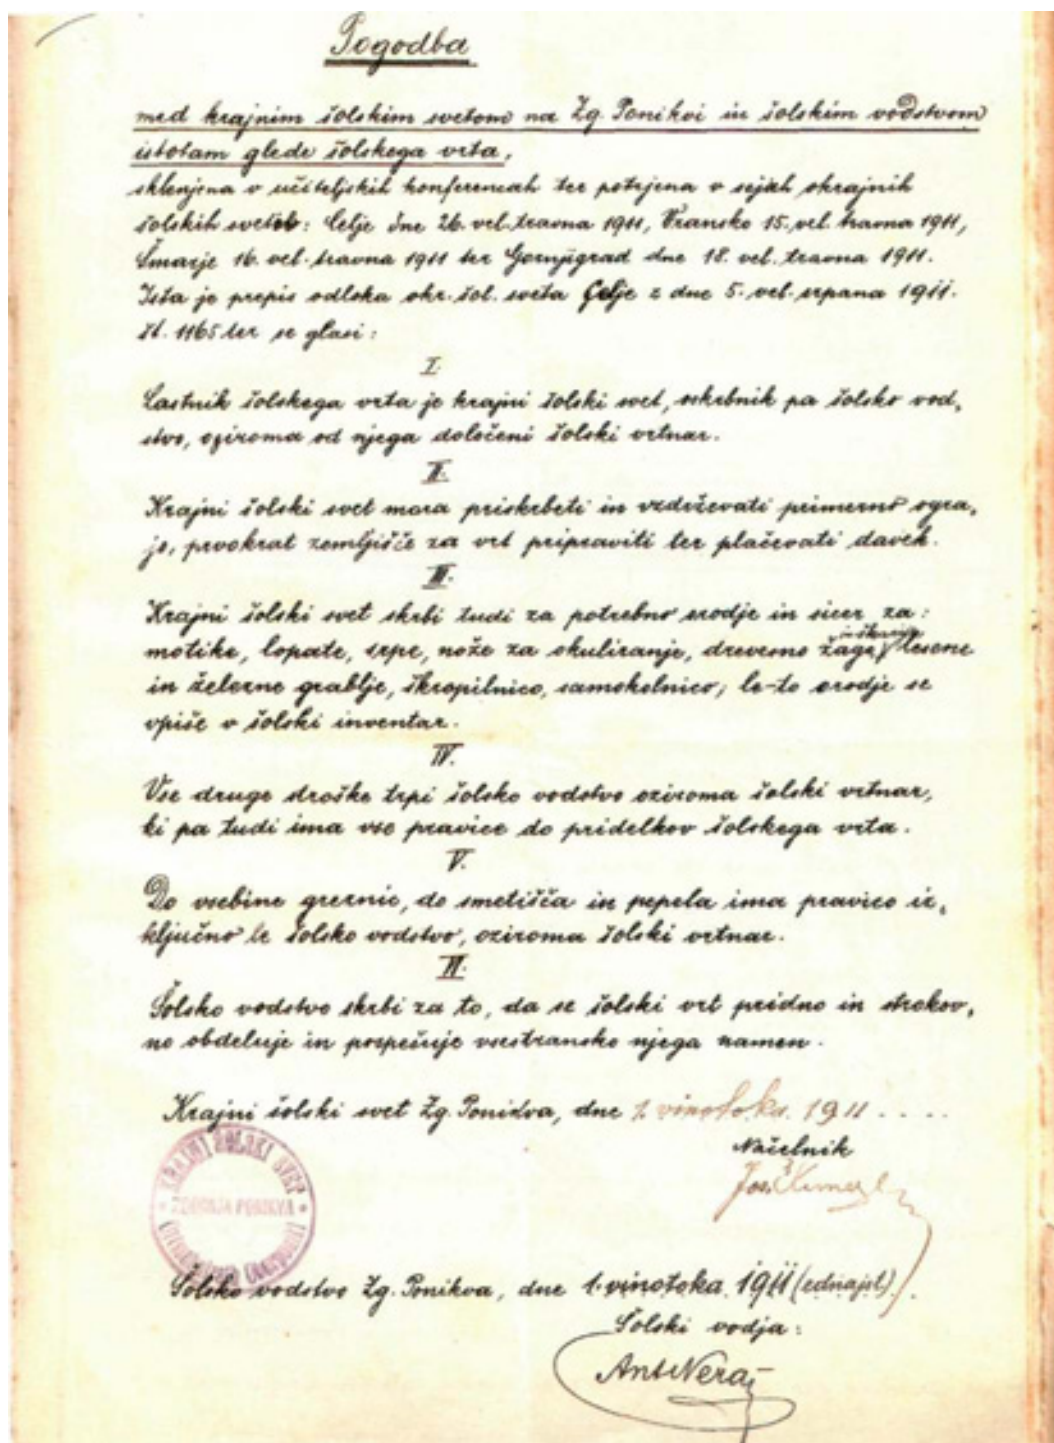 Pogodba
med krajnim šolskim svetom na Zg. Ponikvi in šolskim vodstvom
istotam glede šolskega vrta,
sklenjena v učiteljskih konferencah ter potrjena v sejah okrajnih
šolskih svetov: Celje dne 26. vel. travna 1911, Vransko 15. vel. travna 1911,
Šmarje 16. vel. travna 1911 ter Gornjigrad dne 18. vel. travna 1911.
Ista je prepis odloka okr. šol. sveta Celje z dne 5. vel. srpana 1911.
št. 1165 ter se glasi:
I.
Lastnik šolskega vrta je krajni šolski svet, oskrbnik pa šolsko vod„
stvo, oziroma od njega določeni šolski vrtnar.
II.
Krajni šolski svet mora priskrbeti in vzdrževati primerno ogra„
jo, prvokrat zemljišče za vrt pripraviti ter plačevati davek.
III.
Krajni šolski svet skrbi tudi za potrebno orodje in sicer za:
motike, lopate, srpe, nože za okuliranje, drevesno žago, lesene
in železne grablje, škropilnico, samokolnico; le-to orodje se
vpiše v šolski inventar.
IV.
Vse druge stroške trpi šolsko vodstvo oziroma šolski vrtnar,
ki pa tudi ima vse pravice do pridelkov šolskega vrta.
V.
Do vsebine greznic, do smetišča in pepela ima pravico iz„
ključno le šolsko vodstvo, oziroma šolski vrtnar.
VI.
Šolsko vodstvo skrbi za to, da se šolski vrt pridno in strokov„
no obdeluje in pospešuje vsestransko njega namen.
Krajni šolski svet Zg. Ponikva, dne 1. vinotoka 1911 . . . .
Načelnik
Jos.
KRAJNI ŠOLSKI SVET
ZGORNJA PONIKVA
Šolsko vodstvo Zg. Ponikva, dne 1. vinotoka 1911 (ednajst).
Šolski vodja:
Ant. Nerat